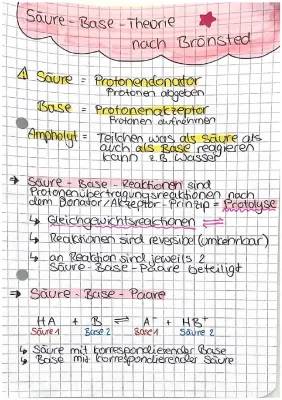 Säure - Base - Theorie
nach Brönsted
Säure = Protonendonator
Protonen abgeben
Base = Protonenakzeptor
Protonen aufnehmen
Ampholyt = Teilchen was als Säure als
auch als Base reagieren
kann z.B. Wasser
→ Säure - Base - Reaktionen sind
Protonenübertragungsreaktionen nach
dem Donator/Akzeptor-Prinzip = Protolyse
↳ Gleichgewichtsreaktionen ⇌
↳ Reaktionen sind reversibel (umkehrbar)
↳ an Reaktion sind jeweils 2
Säure-Base-Paare beteiligt
→ Säure - Base - Paare
HA + B ⇌ A⁻ + HB⁺
Säure 1 Base 2 Base 1 Säure 2
↳ Säure mit korrespondierender Base
↳ Base mit korrespondierender Säure